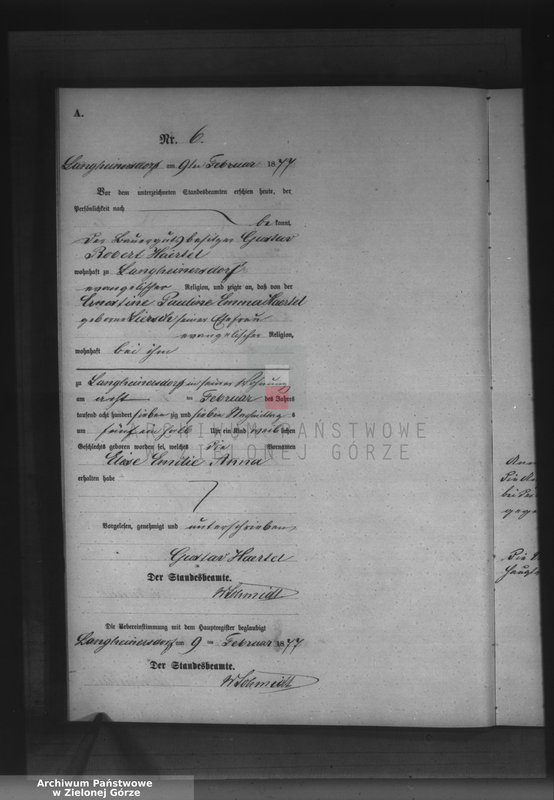 A.
Nr. 6.
Langheinersdorf am 9ten Februar 1877
Vor dem unterzeichneten Standesbeamten erschien heute, der
Persönlichkeit nach
bekannt,
der Bauergutsbesitzer Gustav
Robert Haertel
wohnhaft zu Langheinersdorf
evangelischer Religion, und zeigte an, daß von der
Ernestine Pauline Emma Haertel
geborne seiner Ehefrau
evangelischer Religion,
wohnhaft bei ihm
zu Langheinersdorf in seiner Wohnung
am Februar des Jahres
tausend acht hundert sieben zig und sieben Nachmittag s
um fünf ein halb Uhr ein Kind weiblichen
Geschlechts geboren worden sei, welches die Vornamen
Elise Emilie Anna
erhalten habe
Vorgelesen, genehmigt und unterschrieben
Gustav Haertel
Der Standesbeamte.
WSchmidt
Die Uebereinstimmung mit dem Hauptregister beglaubigt
Langheinersdorf am 9 ten Februar 1877
Der Standesbeamte.
WSchmidt
ARCHIWUM PAŃSTWOWE
W ZIELONEJ GÓRZE
Archiwum Państwowe
w Zielonej Górze